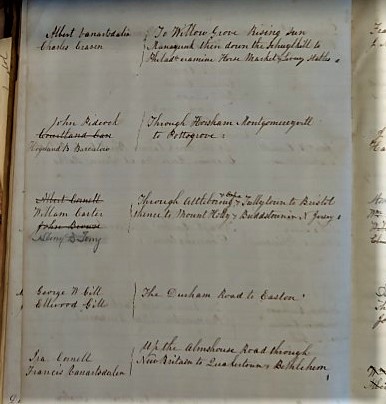 Albert Vanartsdalen } To Willow Grove Rising Sun
Charles Craven } Manayunk then down the Schuylkill to
Philada examine Horse Market & Livery stables
John Pidcock } Through Horsham Montgomeryvill
Courtland } to Pottsgrove
Hogeland B
Albert Cornell } Through Attleboro & Tullytown to Bristol
William Carter } thence to Mount Holly & Buddstown in N Jersey
John
George W Gill } The Durham Road to Easton
Ellwood Gill
Isa Cornell } Up the Almshouse Road through
Francis Vanartsdalen } New Britain to Quakertown & Bethlehem